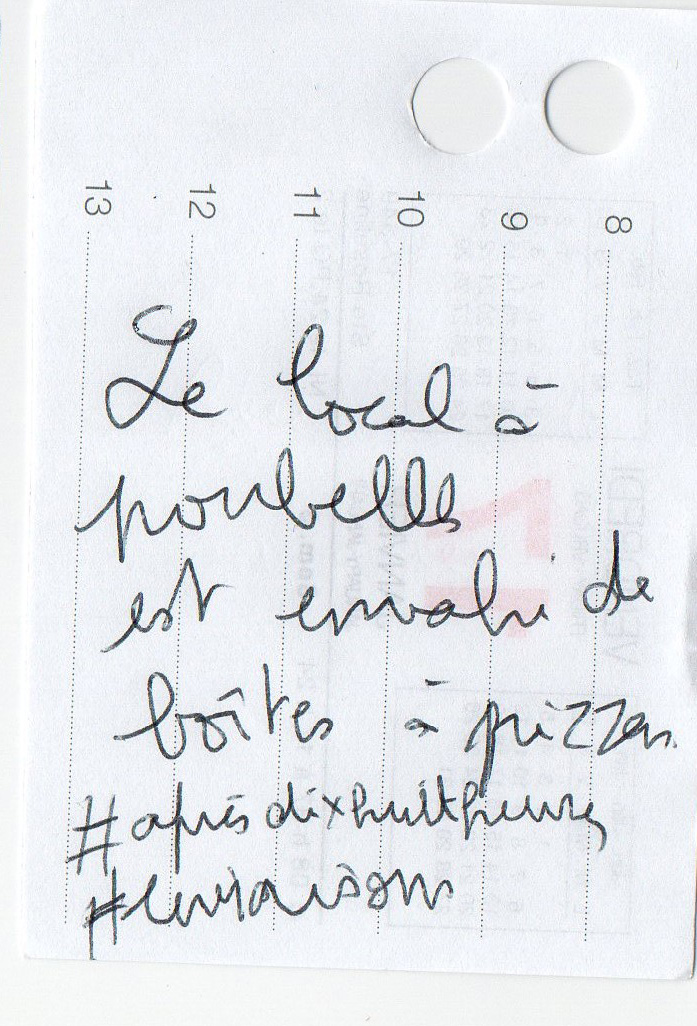 13
12
11
10
9
8
Le local à
poubelles
est envahi de
boîtes à pizzas
#aprèsdixhuitheures
#livraisons